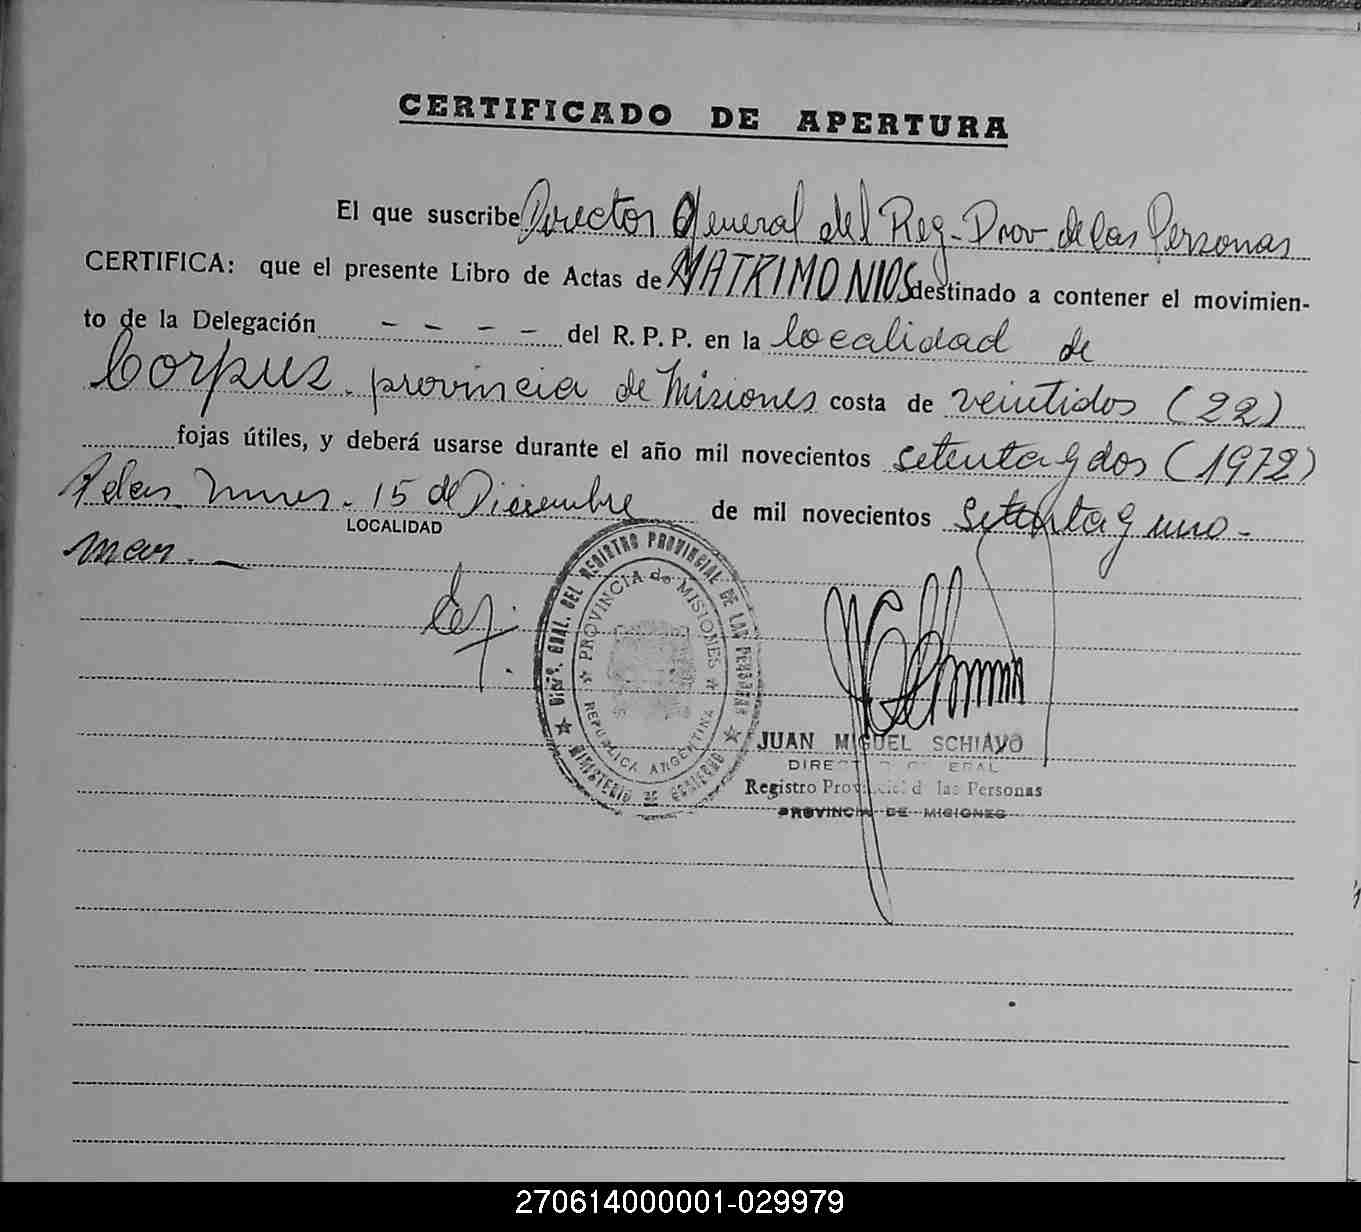 CERTIFICADO DE APERTURA
El que suscribe Director General del Reg. Prov. de las Personas
CERTIFICA: que el presente Libro de Actas de MATRIMONIOS destinado a contener el movimien-
to de la Delegación - - - - del R. P. P. en la localidad de
Corpus. provincia de Misiones costa de veintidos (22)
fojas útiles, y deberá usarse durante el año mil novecientos setenta y dos (1972)
15 de Diciembre de mil novecientos setenta y uno -
LOCALIDAD
DIRE. GRAL. DEL REGISTRO PROVINCIAL DE LAS PERSONAS
★ MINISTERIO DE GOBIERNO ★
★ PROVINCIA de MISIONES ★
REPUBLICA ARGENTINA
JUAN MIGUEL SCHIAVO
DIRECTOR GENERAL
Registro Provincial de las Personas
PROVINCIA DE MISIONES
270614000001-029979